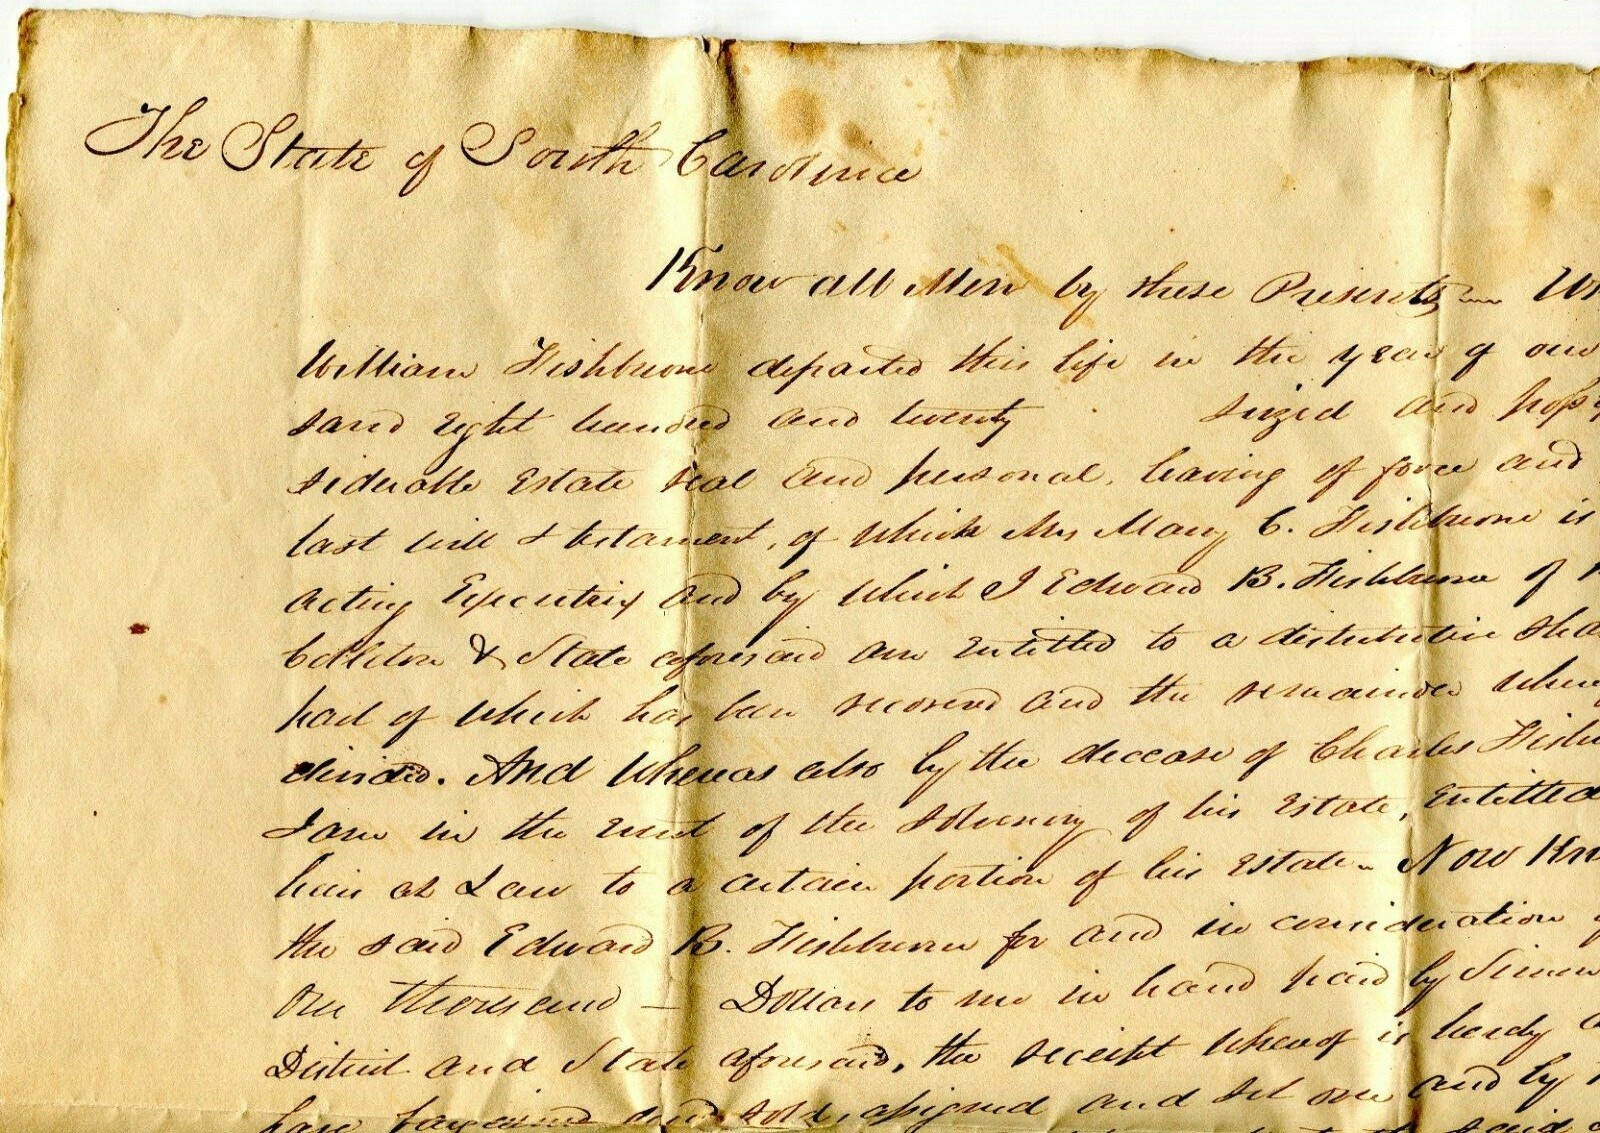 The State of South Carolina
Know all Men by these Presents
William Fishburne departed this life in the year of our
sand eight hundred and twenty seized and
siderable Estate real and personal, leaving of force and
last will & testament, of which Mrs Mary C. Fishburne is
acting Executrix and by which I Edward B. Fishburne of
Colleton & State aforesaid am entitled to a distributive
part of which has been received and the remainder
divided. And whereas also by the decease of Charles
I am in the event of the solvency of his Estate, entitled
heir at Law to a certain portion of his Estate Now
the said Edward B. Fishburne for and in consideration
One thousand — Dollars to me in hand paid by
District and State aforesaid, the receipt whereof is hereby
have bargained and sold, assigned and set over and by